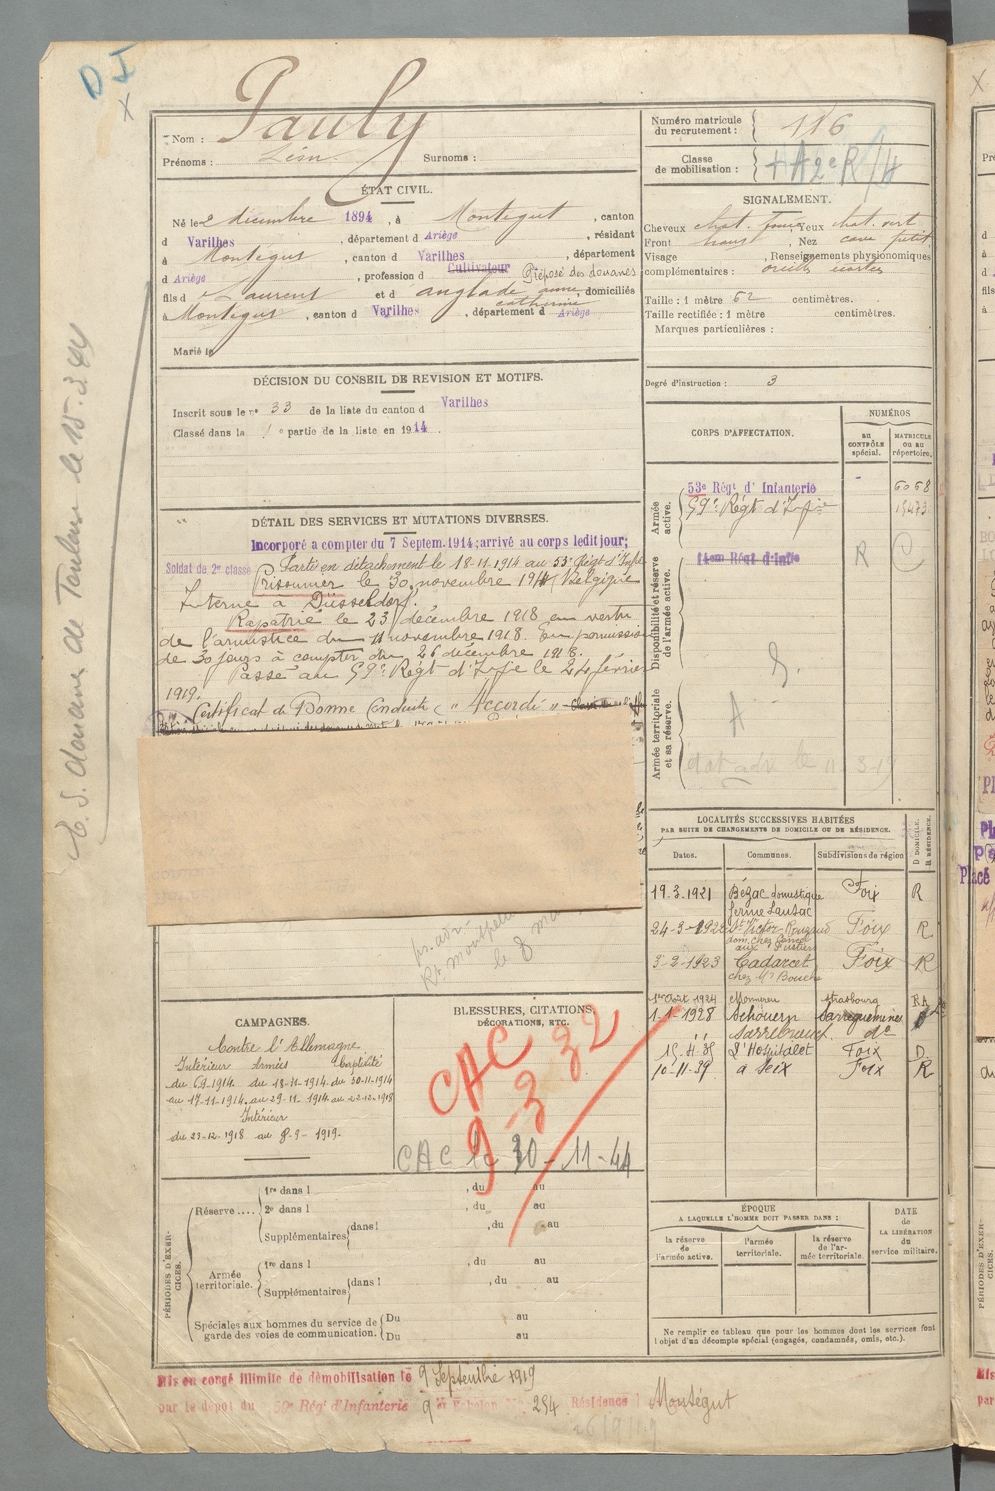 D I
X
Nom : Pauly
Prénoms : Léon Surnoms :
Numéro matricule du recrutement : 116
Classe de mobilisation :
ÉTAT CIVIL.
Né le 2 décembre 1894, à Montégut, canton
d Varilhes, département d Ariège, résidant
à Montégut, canton d Varilhes, département
d Ariège, profession d Cultivateur Préposé des douanes
fils d Laurent et d anglade anne catherine, domiciliés
à Montégut, canton d Varilhes, département d Ariège
Marié le
SIGNALEMENT.
Cheveux chat. foncé, Yeux chat. vert
Front moy, Nez cave petit
Visage , Renseignements physionomiques
complémentaires : oreilles écartées
Taille : 1 mètre 62 centimètres.
Taille rectifiée : 1 mètre centimètres.
Marques particulières :
Degré d'instruction : 3
DÉCISION DU CONSEIL DE REVISION ET MOTIFS.
Inscrit sous le n° 33 de la liste du canton d Varilhes
Classé dans la 1e partie de la liste en 1914.
DÉTAIL DES SERVICES ET MUTATIONS DIVERSES.
Incorporé à compter du 7 Septem. 1914; arrivé au corps ledit jour;
Soldat de 2e classe Parti en détachement le 18-11-1914 au 53e Régt d'Infie
Prisonnier le 30 novembre 1914 (Belgique
Interné à Düsseldorf.
Rapatrié le 23 décembre 1918 en vertu
de l'armistice du 11 novembre 1918. En permission
de 30 jours à compter du 26 décembre 1918.
Passé au 59e Régt d'Infie le 24 février
1919.
Certificat de Bonne Conduite "Accordé"
R.S. douane de Toulouse le 15.3.44
CORPS D'AFFECTATION.
NUMÉROS
au CONTRÔLE spécial.
MATRICULE ou au répertoire.
Armée active.
53e Régt d'Infanterie 6068
59e Régt d'Infie 15473
Disponibilité et réserve de l'armée active.
R C
Armée territoriale et sa réserve.
A
LOCALITÉS SUCCESSIVES HABITÉES
PAR SUITE DE CHANGEMENTS DE DOMICILE OU DE RÉSIDENCE.
Dates. Communes. Subdivisions de région D DOMICILE. R RÉSIDENCE.
19.3.1921 Bézac domestique ferme Lansac Foix R
24-3-1922 St Victor Rouzaud Foix R
3-2-1923 Cadarcet chez Mr Bouche Foix R
1er Août 1924 Strasbourg RA
1-1-1928 Schouern Sarreguemines
" Sarrebruck do
15-11-35 L'Hospitalet Foix D
10-11-39 à Seix Foix R
pr. adr.
Rt montpellier
le 8
CAMPAGNES.
Contre l'Allemagne
Intérieur Armées Captivité
du 6.9.1914. du 18-11-1914. du 30-11-1914
au 17-11-1914. au 29-11-1914. au 22-12-1918
Intérieur
du 23-12-1918 au 8-9-1919.
BLESSURES, CITATIONS,
DÉCORATIONS, ETC.
CAC
9 3 32
CAC le 30-11-44
PÉRIODES D'EXERCICES.
Réserve .... 1re dans l , du au
2e dans l , du au
Supplémentaires dans l , du au
Armée territoriale. 1re dans l , du au
Supplémentaires dans l , du au
Spéciales aux hommes du service de garde des voies de communication. Du au
Du au
ÉPOQUE
A LAQUELLE L'HOMME DOIT PASSER DANS :
la réserve de l'armée active. l'armée territoriale. la réserve de l'armée territoriale.
DATE de LA LIBÉRATION du service militaire.
Ne remplir ce tableau que pour les hommes dont les services font
l'objet d'un décompte spécial (engagés, condamnés, omis, etc.).
Mis en congé illimité de démobilisation le 9 Septembre 1919
par le dépôt du 59e Régt d'Infanterie 9e Echelon N° 254 Résidence : Montégut